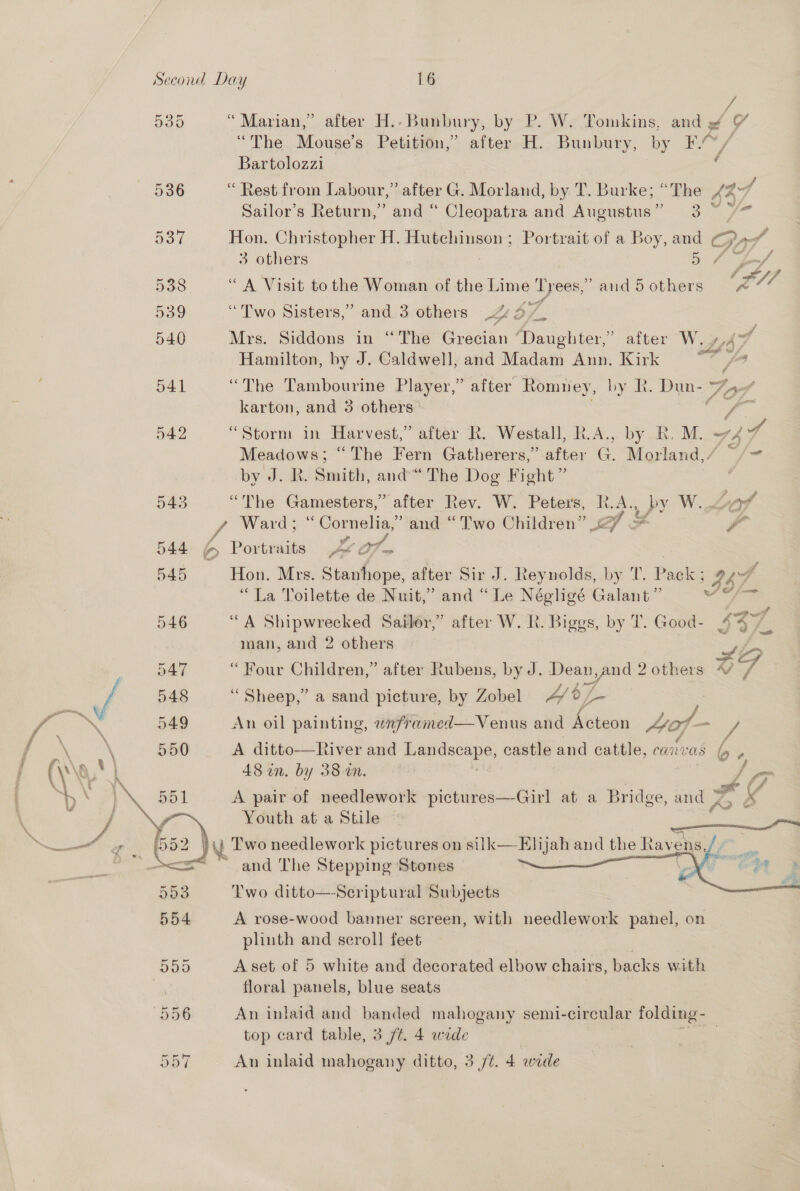 Second Day 16
535 “Marian,” after H. Bunbury, by P. W. Tomkins, and
“The Mouse’s Petition,” after H. Bunbury, by F.
Bartolozzi
536 “Rest from Labour,” after G. Morland, by T. Burke; “The
Sailor’s Return,” and “Cleopatra and Augustus” 3
537 Hon. Christopher H. Hutchinson; Portrait of a Boy, and
3 others 5
538 “A Visit to the Woman of the Lime Trees,” and 5 others
539 “Two Sisters,” and 3 others
540 Mrs. Siddons in “The Grecian Daughter,” after W.
Hamilton, by J. Caldwell, and Madam Ann. Kirk
541 “The Tambourine Player,” after Romney, by R. Dun-
karton, and 3 others
542 “Storm in Harvest,” after R. Westall, R.A., by R. M.
Meadows; “The Fern Gatherers,” after G. Morland,
by J. R. Smith, and “The Dog Fight”
543 “The Gamesters,” after Rev. W. Peters, R.A., by W.
Ward; “Cornelia,” and “Two Children”
544 Portraits
545 Hon. Mrs. Stanhope, after Sir J. Reynolds, by T. Pack;
“La Toilette de Nuit,” and “Le Négligé Galant”
546 “A Shipwrecked Sailor,” after W. R. Biggs, by T. Good-
man, and 2 others
547 “Four Children,” after Rubens, by J. Dean, and 2 others
548 “Sheep,” a sand picture, by Zobel
549 An oil painting, unframed—Venus and Acteon
550 A ditto—River and Landscape, castle and cattle, canvas
48 in. by 38 in.
551 A pair of needlework pictures—Girl at a Bridge, and
Youth at a Stile
552 Two needlework pictures on silk—Elijah and the Ravens,
and The Stepping Stones
553 Two ditto—Scriptural Subjects
554 A rose-wood banner screen, with needlework panel, on
plinth and scroll feet
555 A set of 5 white and decorated elbow chairs, backs with
floral panels, blue seats
556 An inlaid and banded mahogany semi-circular folding-
top card table, 3 ft. 4 wide
557 An inlaid mahogany ditto, 3 ft. 4 wide